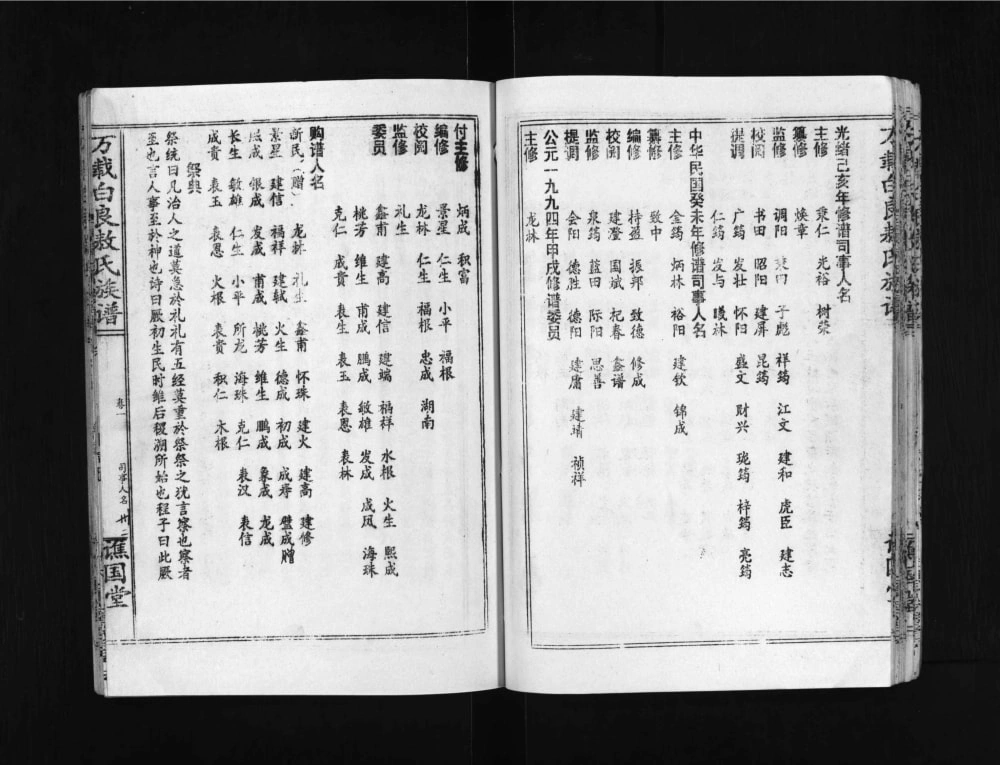 光绪己亥年修谱司事人名
主修 秉仁 光裕 树荣
纂修 焕章
监修 调阳 子彪 祥筠 江文 建和 虎臣 建志
校阅 书田 昭阳 建屏 昆筠
提调 广筠 发壮 怀阳 盛文 财兴 珑筠 梓筠 亮筠
仁筠 发与
中华民国癸未年修谱司事人名
主修 金筠 炳林 裕阳 建钦 锦成
纂修 致中
编修 持盈 振邦 致德 修成
校阅 建滢 国斌 杞春 鑫谱
监修 泉筠 蓝田 际阳 思善
提调 会阳 德胜 德阳 建庸 建靖 祯祥
公元一九九四年甲戌修谱委员
主修 龙林
付主修 炳成 积富
编修 景星 仁生 小平 福根
校阅 龙林 仁生 福根 忠成 湖南
监修 礼生
委员 鑫甫 建高 建信 建瑞 福祥 水根 火生 熙成
桃芳 维生 甫成 鹏成 敏雄 发成 成凤 海珠
克仁 成贵 袁生 袁玉 袁恩 袁林
购谱人名
新民(赠) 龙林 礼生 鑫甫 怀珠 建火 建高 建修
景星 建信 福祥 建钺 火生 德成 初成 成寿 璧成赠
熙成 银成 发成 甫成 桃芳 维生 鹏成 象成 龙成
长生 敏雄 仁生 小平 所龙 海珠 克仁 袁汉 袁信
成贵 袁玉 袁恩 火根 袁贵 积仁 木根
祭典
祭统曰凡治人之道莫急於礼礼有五经莫重於祭祭之犹言察也察者
至也言人事至於神也诗曰厥初生民时维后稷溯所始也程子曰此厥
万载白良敖氏族谱
卷一
司事人名
谯国堂